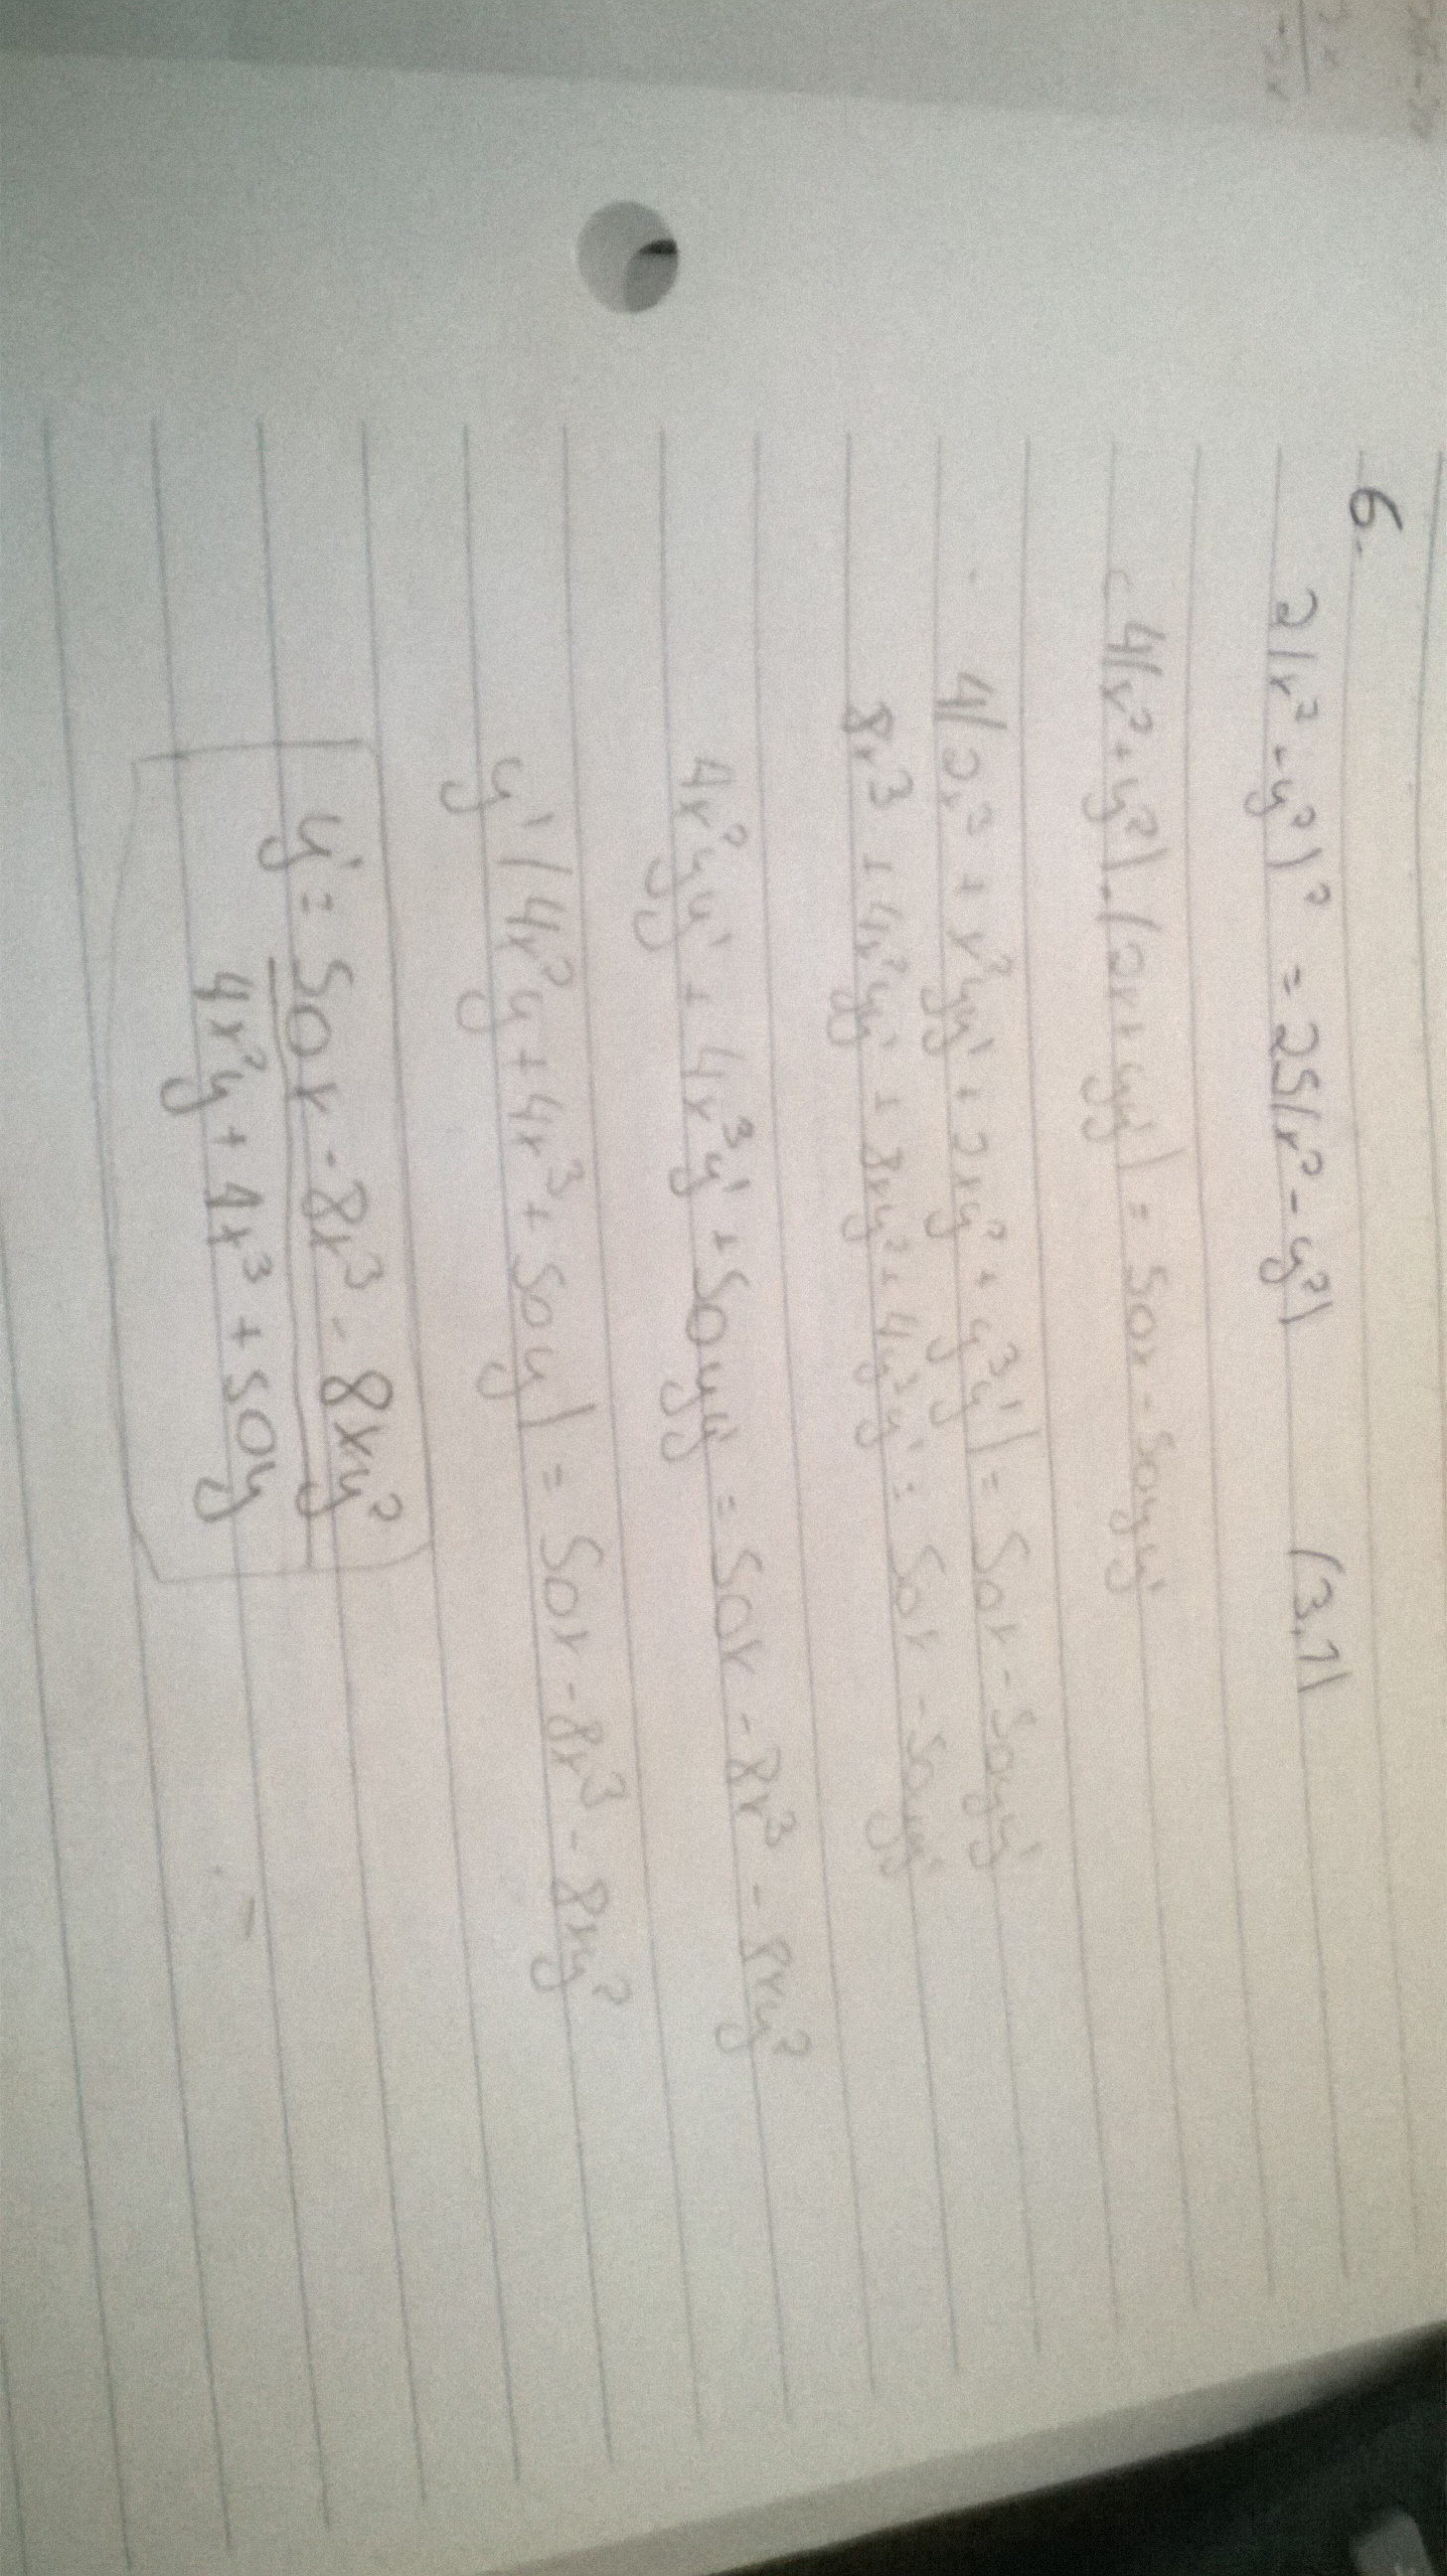 6.
2(x² + y²)² = 25(x² - y²) (3,1)
4(x² + y²) · (2x + yy') = 50x - 50yy'
4(2x³ + x²yy' + 2xy² + y³y') = 50x - 50yy'
8x³ + 4x²yy' + 8xy² + 4y³y' = 50x - 50yy'
4x²yy' + 4x³y' + 50yy' = 50x - 8x³ - 8xy²
y'(4x²y + 4x³ + 50y) = 50x - 8x³ - 8xy²
y' = 50x - 8x³ - 8xy²
4x²y + 4x³ + 50y